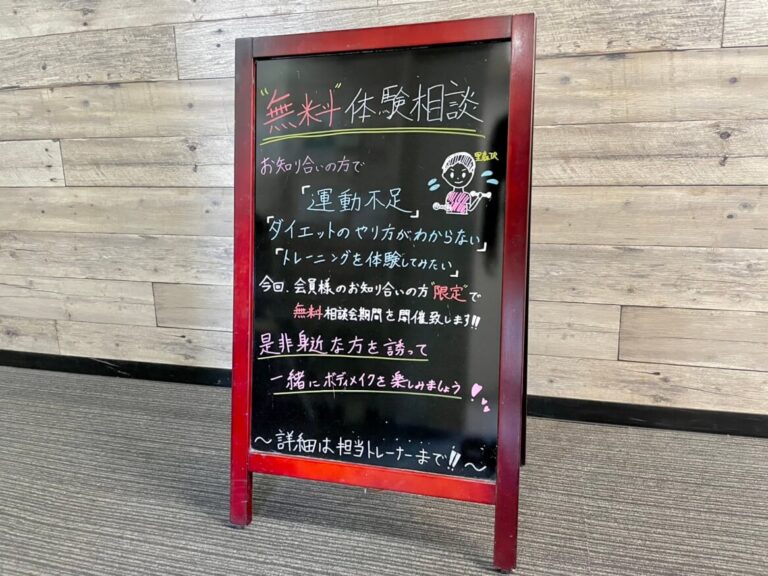 "無料"体験相談
お知り合いの方で
「運動不足」
「ダイエットのやり方がわからない」
「トレーニングを体験してみたい」
今回、会員様のお知り合いの方"限定"で
無料相談会期間を開催致します!!
是非身近な方を誘って
一緒にボディメイクを楽しみましょう!
~詳細は担当トレーナーまで!!~